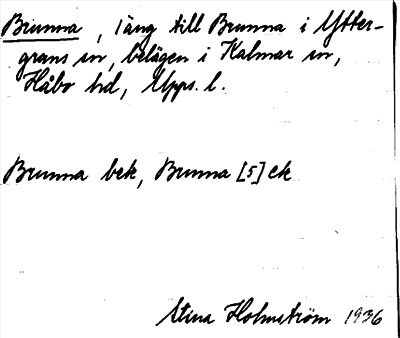 Brunna, läng till Brunna i Ytter-
grans sn, belägen i Kalmar sn,
Håbo hd, Upps. l.
Brunna bek, Brunna [5] ek
Stina Holmström 1936